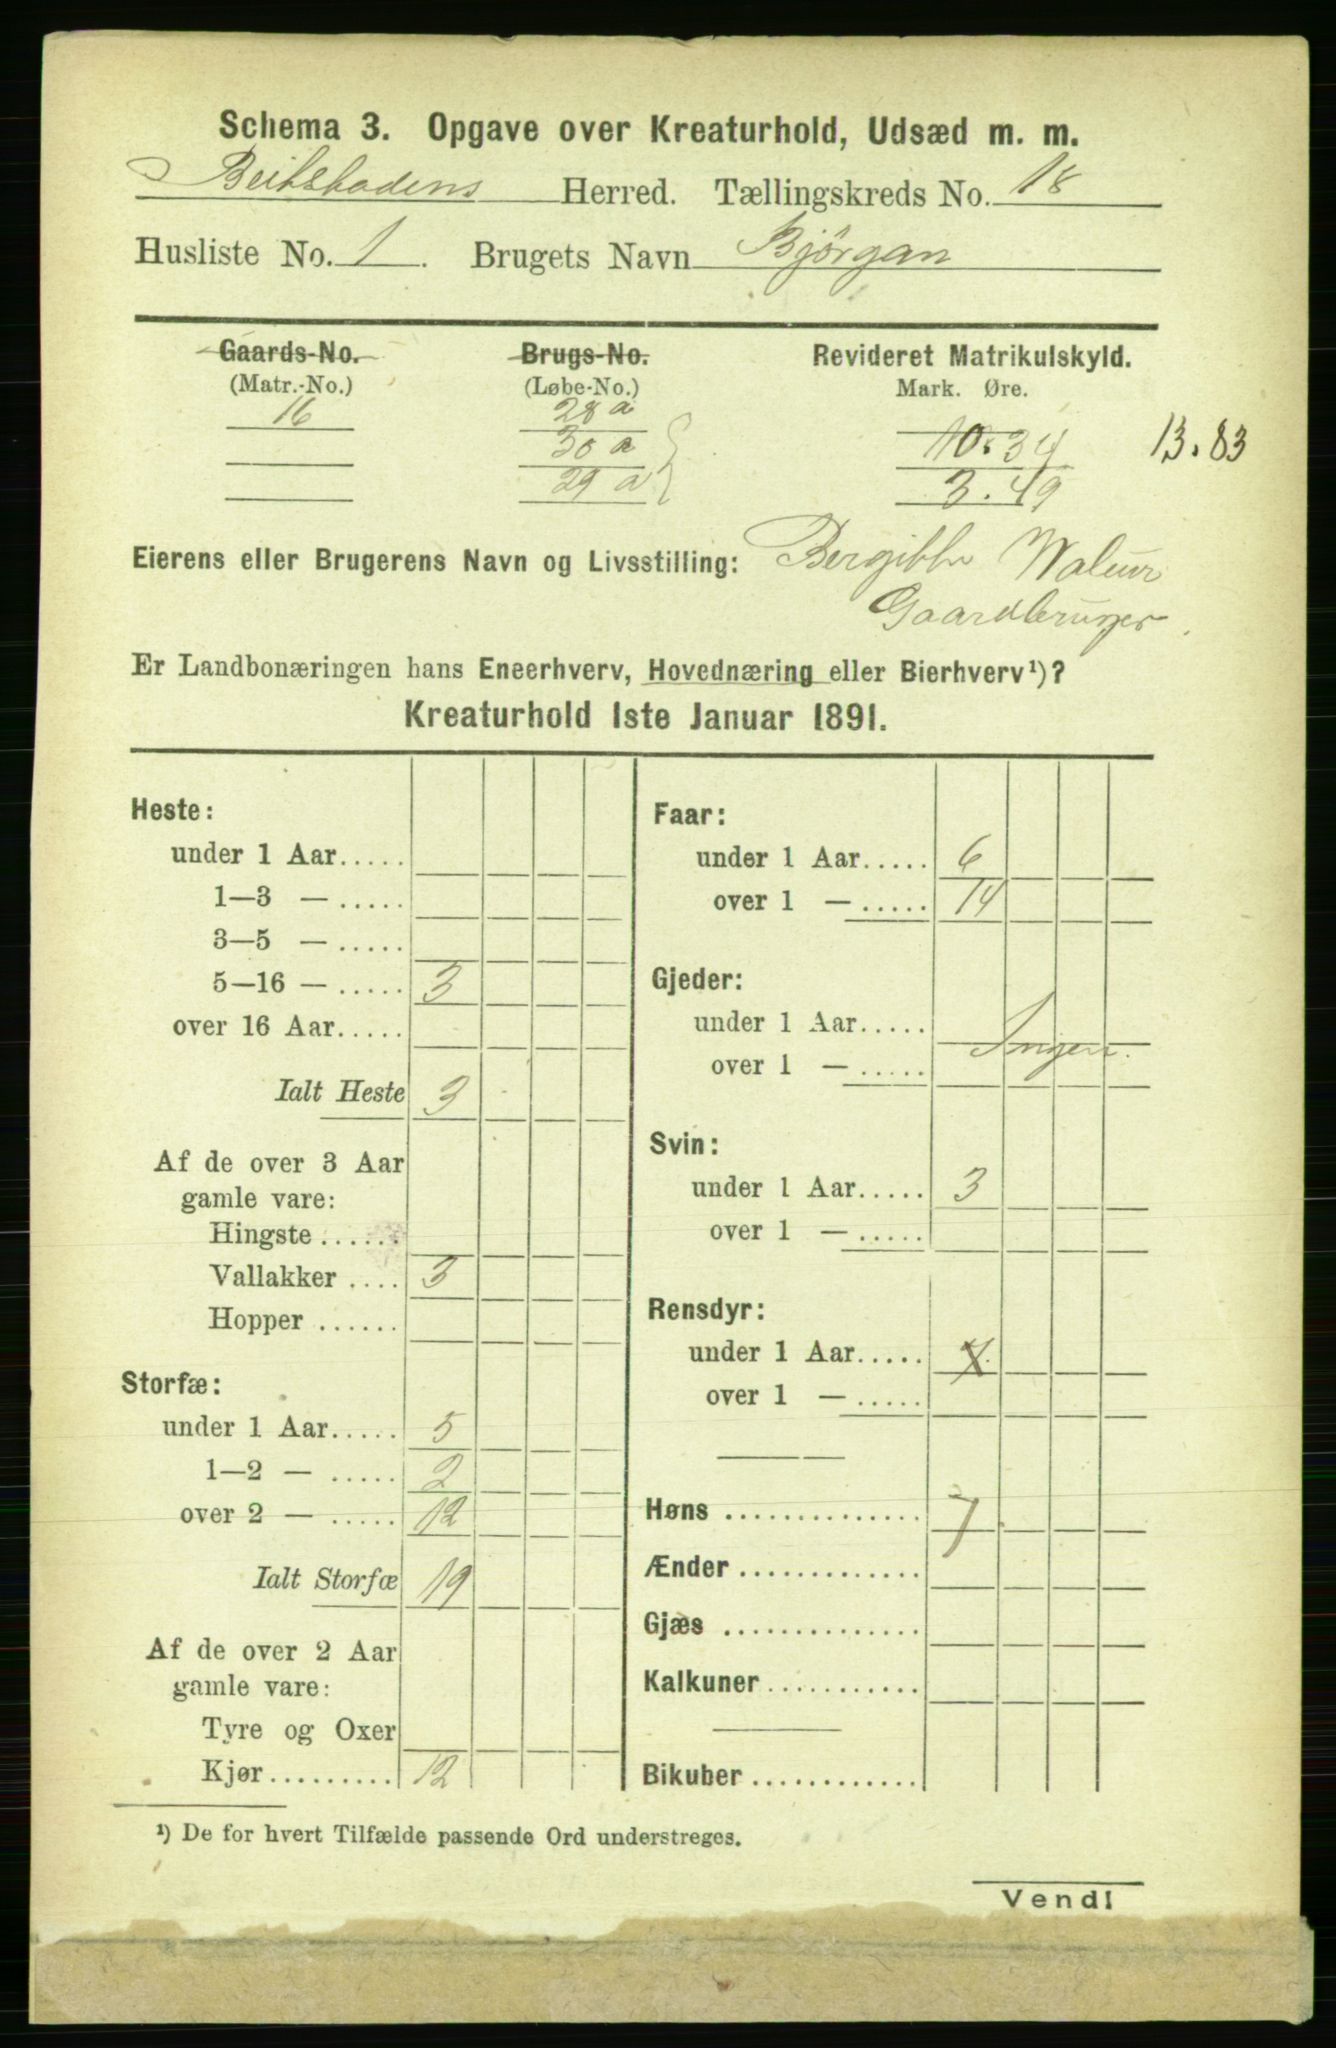 Schema 3. Opgave over Kreaturhold, Udsæd m. m.
Beitstadens Herred. Tællingskreds No. 18
Husliste No. 1. Brugets Navn Bjørgan
Gaards-No. Brugs-No. Revideret Matrikulskyld.
(Matr.-No.) (Løbe-No.) Mark. Øre.
16 28 a
30 a 10.34 13.83
29 a 3.49
Eierens eller Brugerens Navn og Livsstilling: Bergitte
Gaardbruger
Er Landbonæringen hans Eneerhverv, Hovednæring eller Bierhverv¹)?
Kreaturhold 1ste Januar 1891.
Heste:
under 1 Aar.....
1—3 — .....
3—5 — .....
5—16 — ..... 3
over 16 Aar.....
Ialt Heste 3
Af de over 3 Aar
gamle vare:
Hingste ......
Vallakker .... 3
Hopper ......
Storfæ:
under 1 Aar..... 5
1—2 — ..... 2
over 2 — ..... 12
Ialt Storfæ 19
Af de over 2 Aar
gamle vare:
Tyre og Oxer
Kjør......... 12
Faar:
under 1 Aar..... 6
over 1 — ..... 14
Gjeder:
under 1 Aar.....
Ingen.
over 1 — .....
Svin:
under 1 Aar..... 3
over 1 — .....
Rensdyr:
under 1 Aar.....
over 1 — .....
Høns .............. 7
Ænder .............
Gjæs ..............
Kalkuner...........
Bikuber ............
¹) De for hvert Tilfælde passende Ord understreges.
Vend!